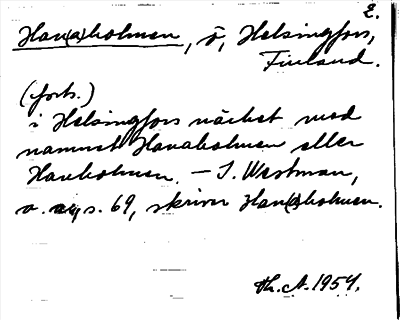 2.
Han(a)holmen, ö, Helsingfors,
Finland.
(forts.)
i Helsingfors närbet med
namnet Hanaholmen eller
Hanholmen. – I. Westman,
o. a. s. 69, skriver Han(a)holmen.
Th. A. 1954.